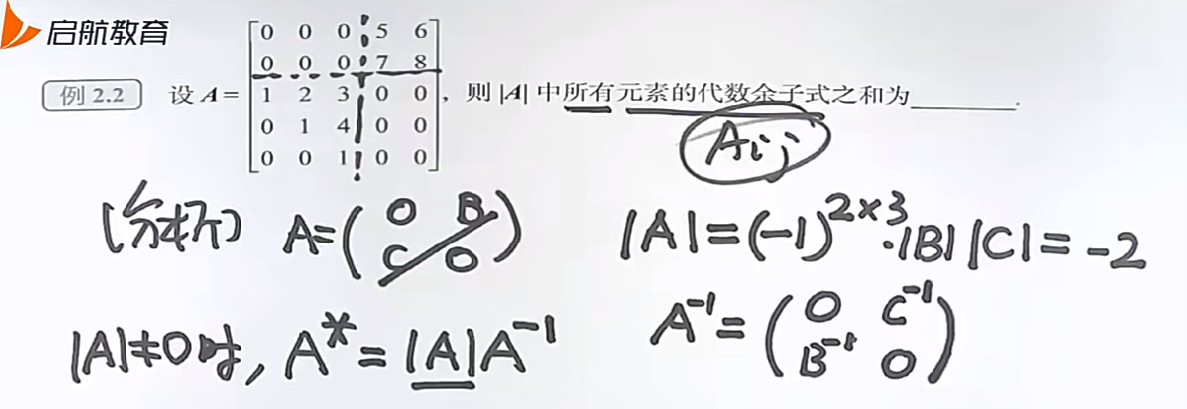 启航教育
例 2.2 设 A = [0 0 0 5 6; 0 0 0 7 8; 1 2 3 0 0; 0 1 4 0 0; 0 0 1 0 0], 则 |A| 中所有元素的代数余子式之和为________.
Aij
(分析) A=(O B; C O) |A|=(-1)^{2×3}·|B||C|=-2
|A|≠0时, A*=|A|A^{-1} A^{-1}=(O C^{-1}; B^{-1} O)